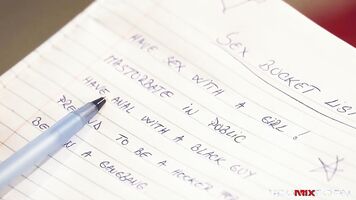 SEX BUCKET LIST
HAVE SEX WITH A GIRL!
MASTURBATE IN PUBLIC
HAVE ANAL WITH A BLACK GUY
TO BE A HOOKER
BE IN A GANGBANG
MIX